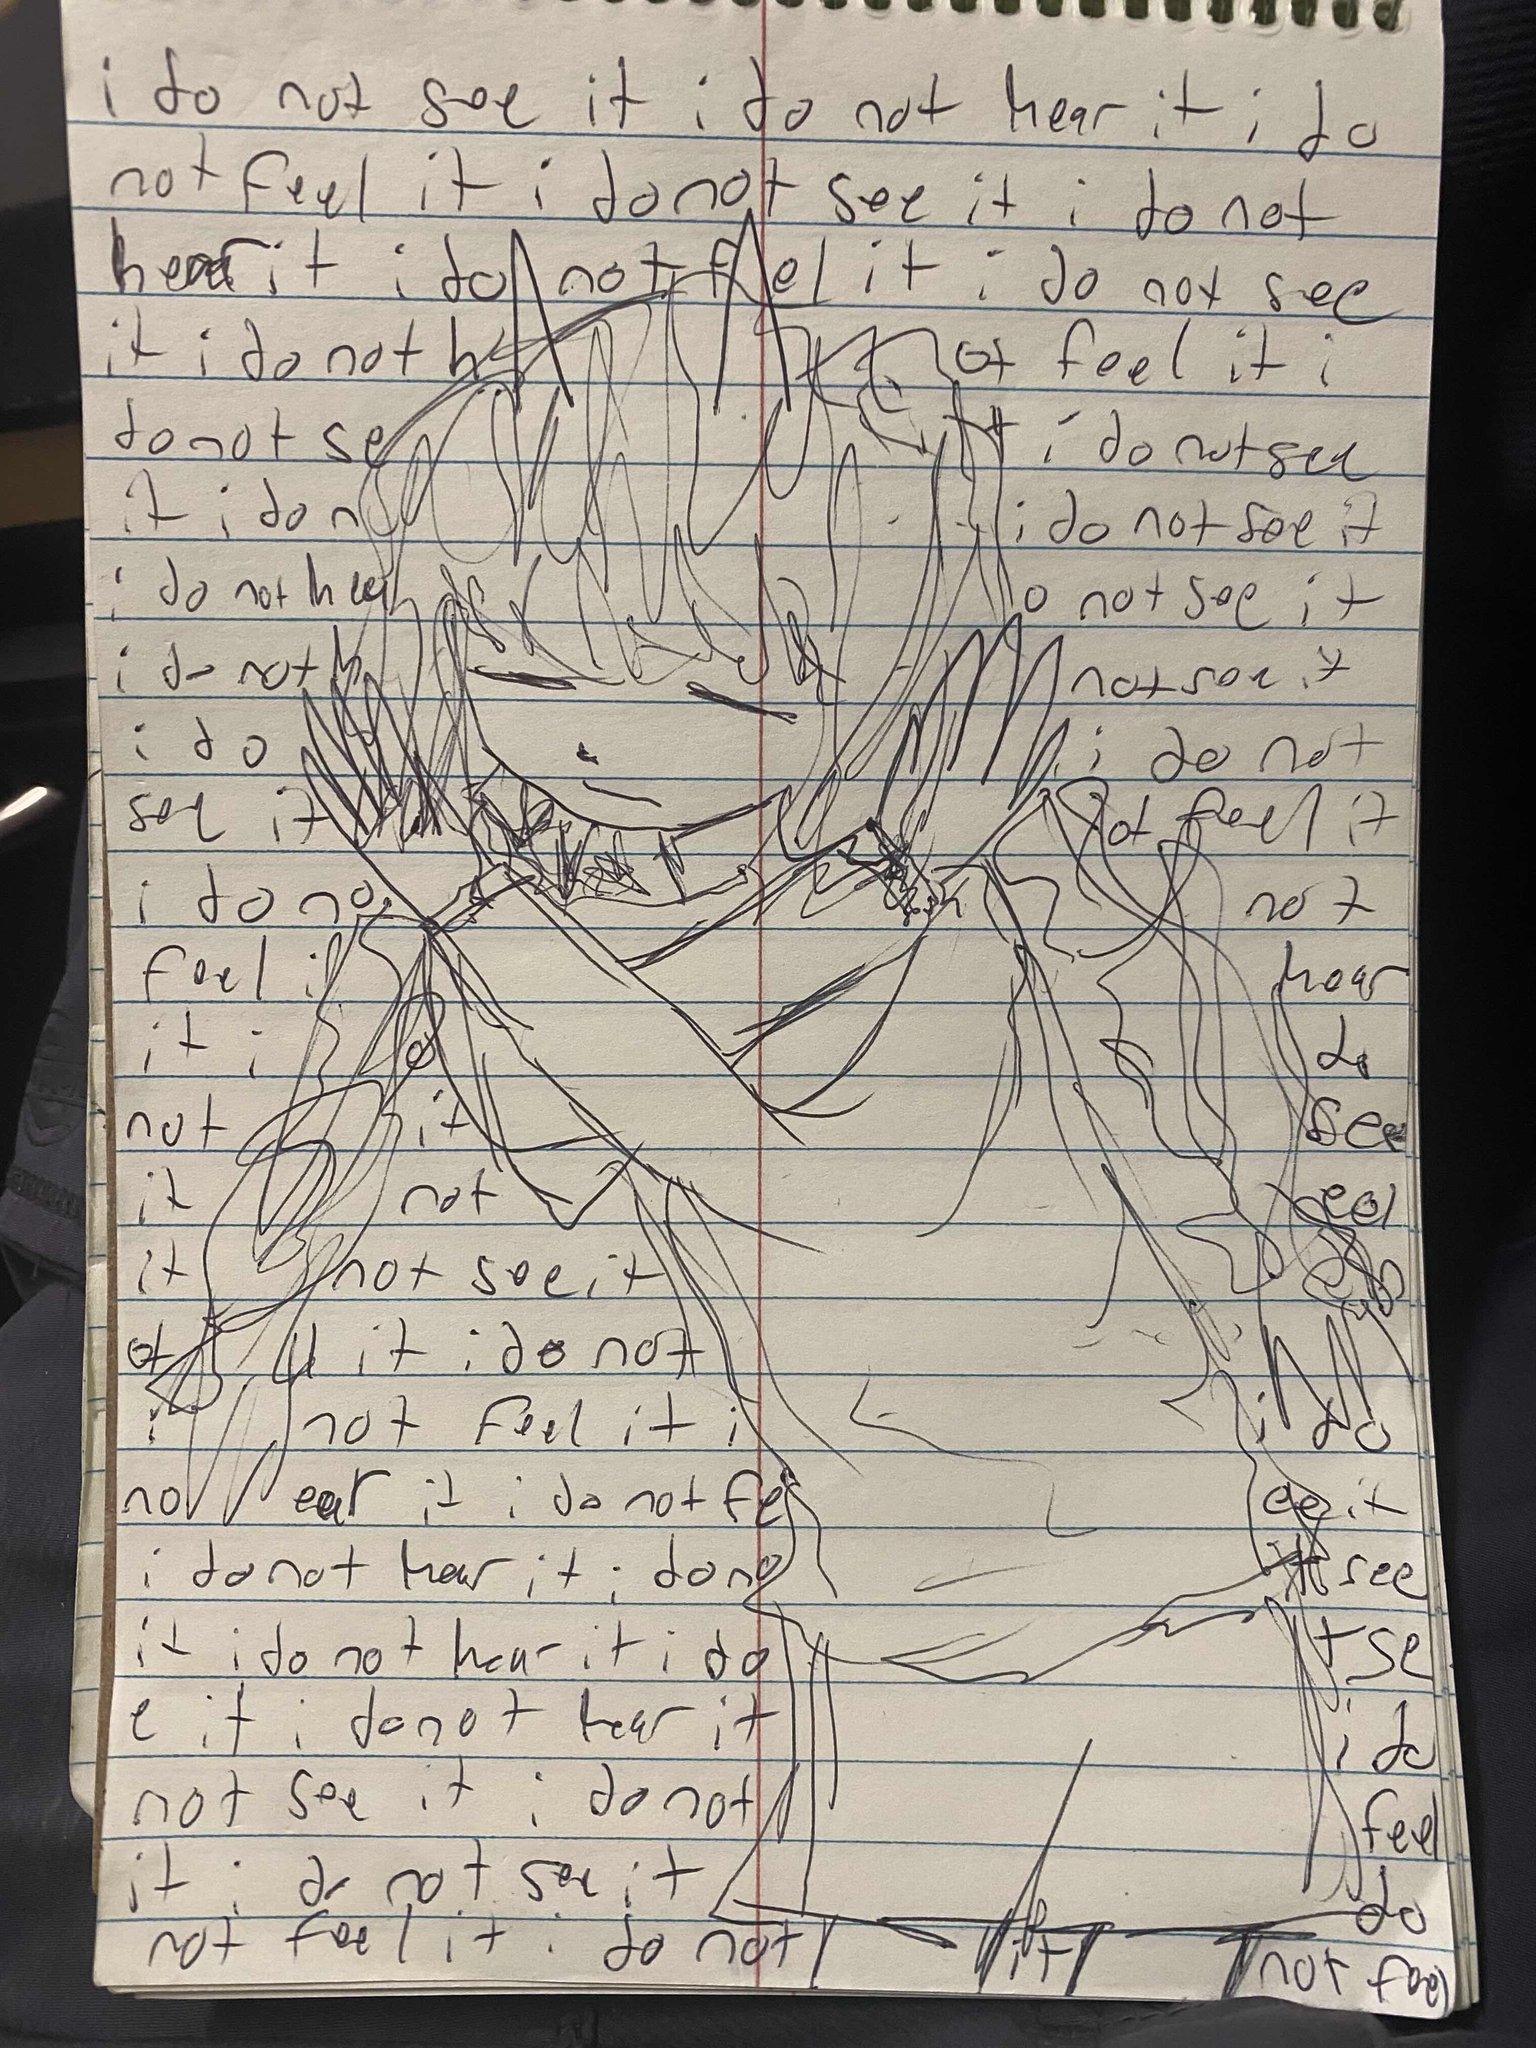 i do not see it i do not hear it i do
not feel it i do not see it i do not
hear it i do not feel it i do not see
it i do not h ot feel it i
do not se it i do not see
it i do n i do not see it
i do not hear o not see it
i do not h not see it
i do i do not
see it ot feel it
i do no not
feel i hear
it i do
not it see
it not eel
it not see it
ot ll it i do not
i not feel it i i do
no ear it i do not fe ee it
i do not hear it i do no t see
it i do not hear it i do t se
e it i do not hear it i do
not see it i do not feel
it i do not see it do
not feel it i do not it not feel